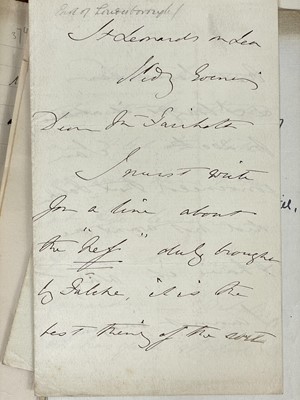 Earl of Londesborough
St Leonards on Sea
Wedy Evening
Dear Mr Fairholt
I must write
you a line about
the "Nef" duly brought
by Falcke, it is the
best thing of the sort